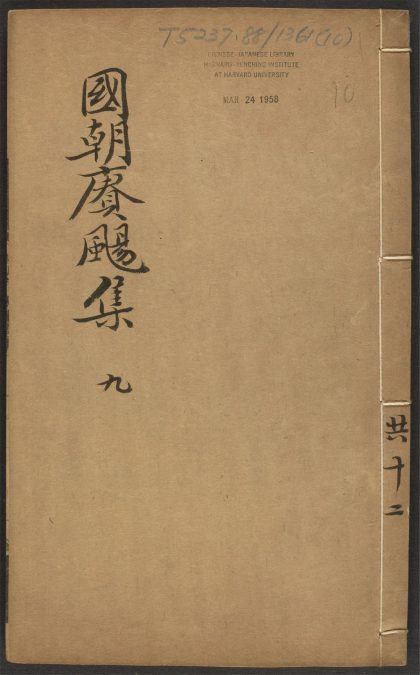 T5237.88/1361(10)
CHINESE-JAPANESE LIBRARY
HARVARD-YENCHING INSTITUTE
AT HARVARD UNIVERSITY
MAR 24 1958
10
國朝賡颺集
九
共十二